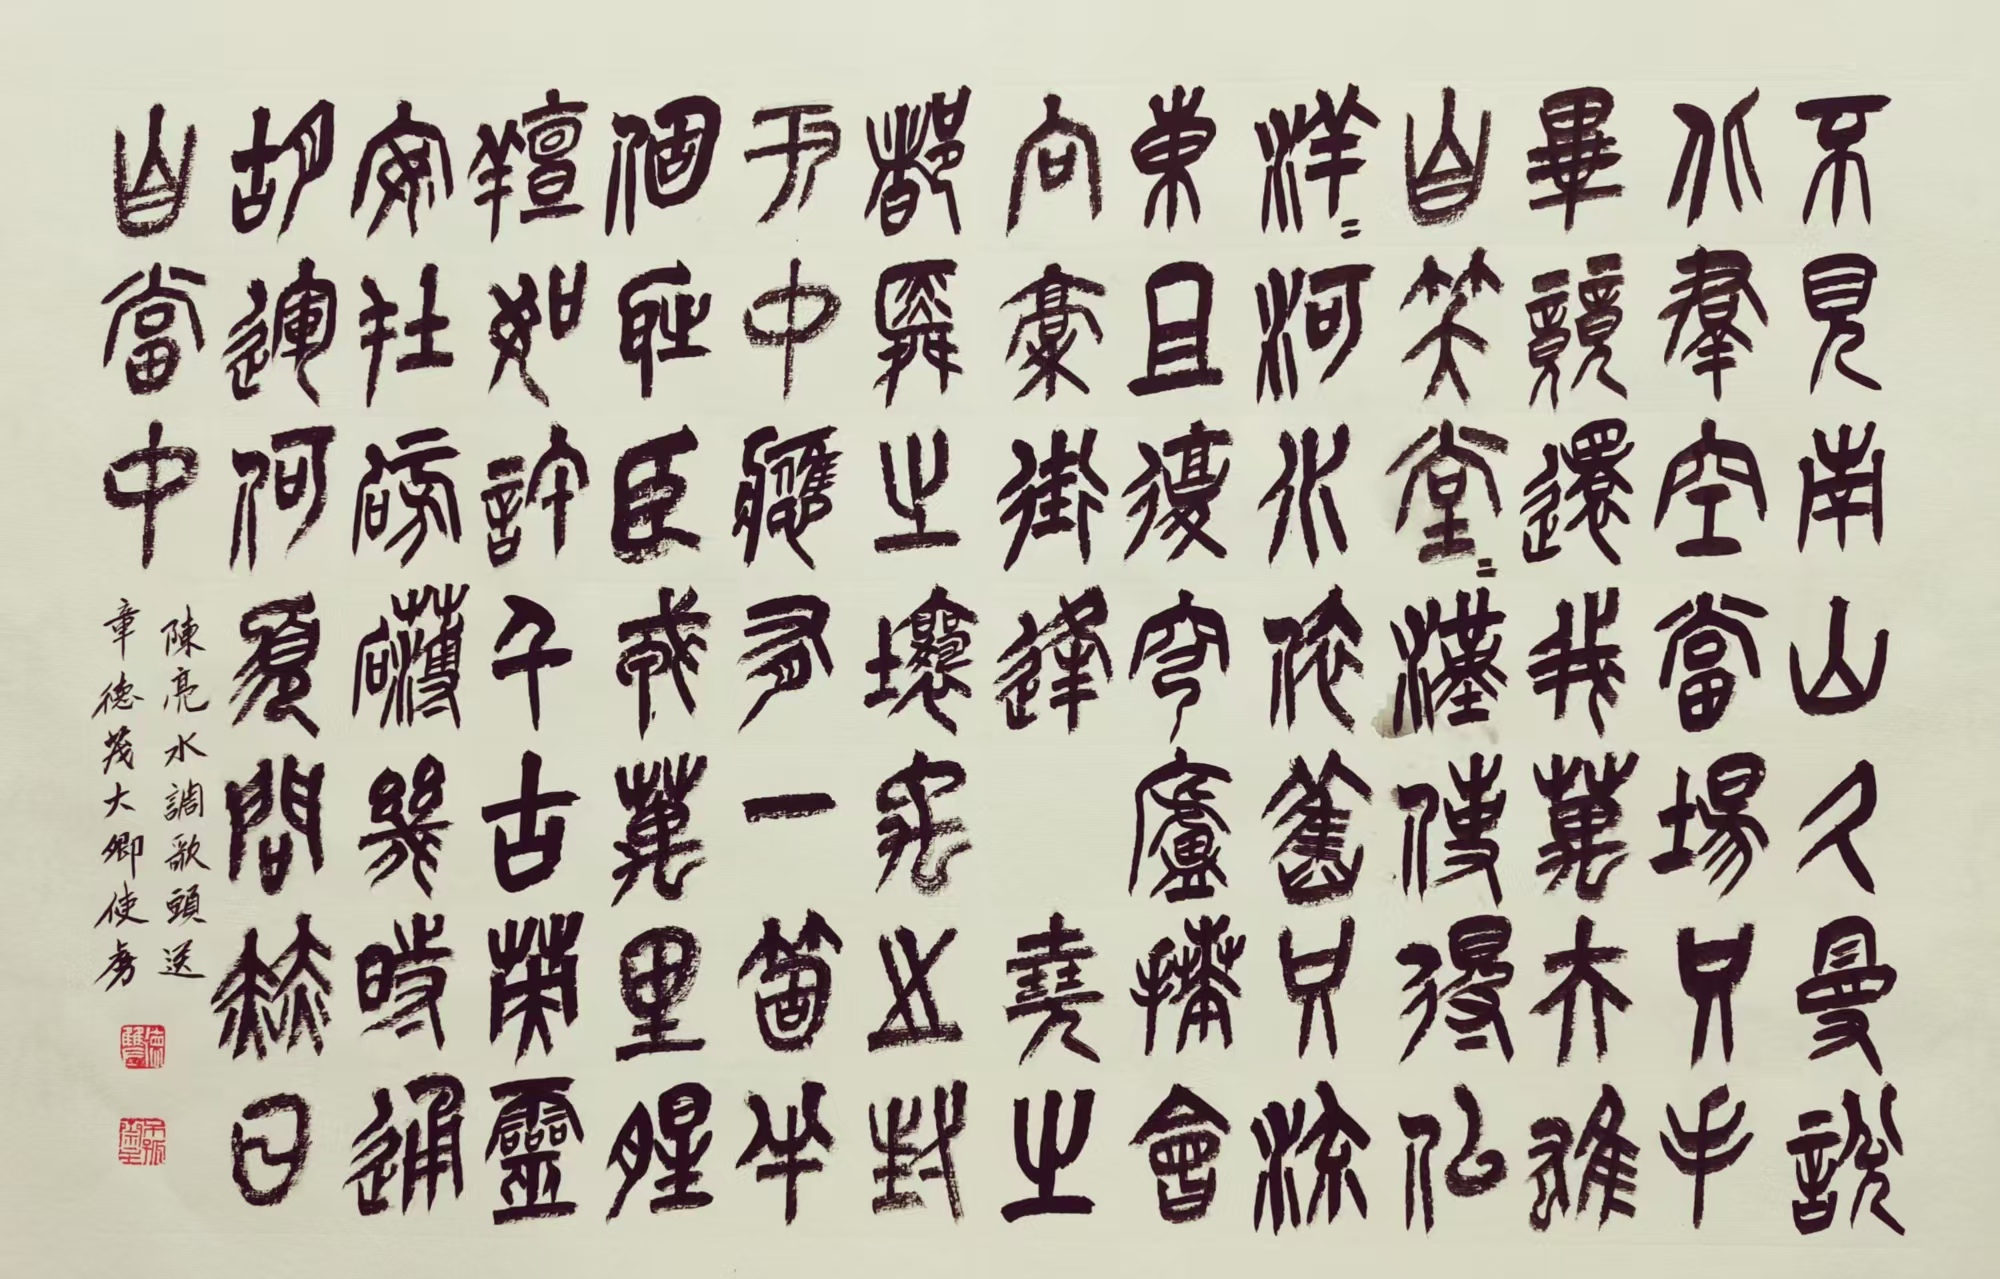 不見南山久曼說
北羣空當場只手
畢竟還我萬夫雄
自笑堂〻漢使得似
洋〻河水依舊只流
東且復穹廬捧會
向藁街逢 堯之
都舜之壤禹之封
于中應有一箇半
個恥臣戎萬里腥
羶如許千古英靈
安在磅礴幾時通
胡運何須問赫日
自當中
陳亮水調歌頭送
章德茂大卿使虜